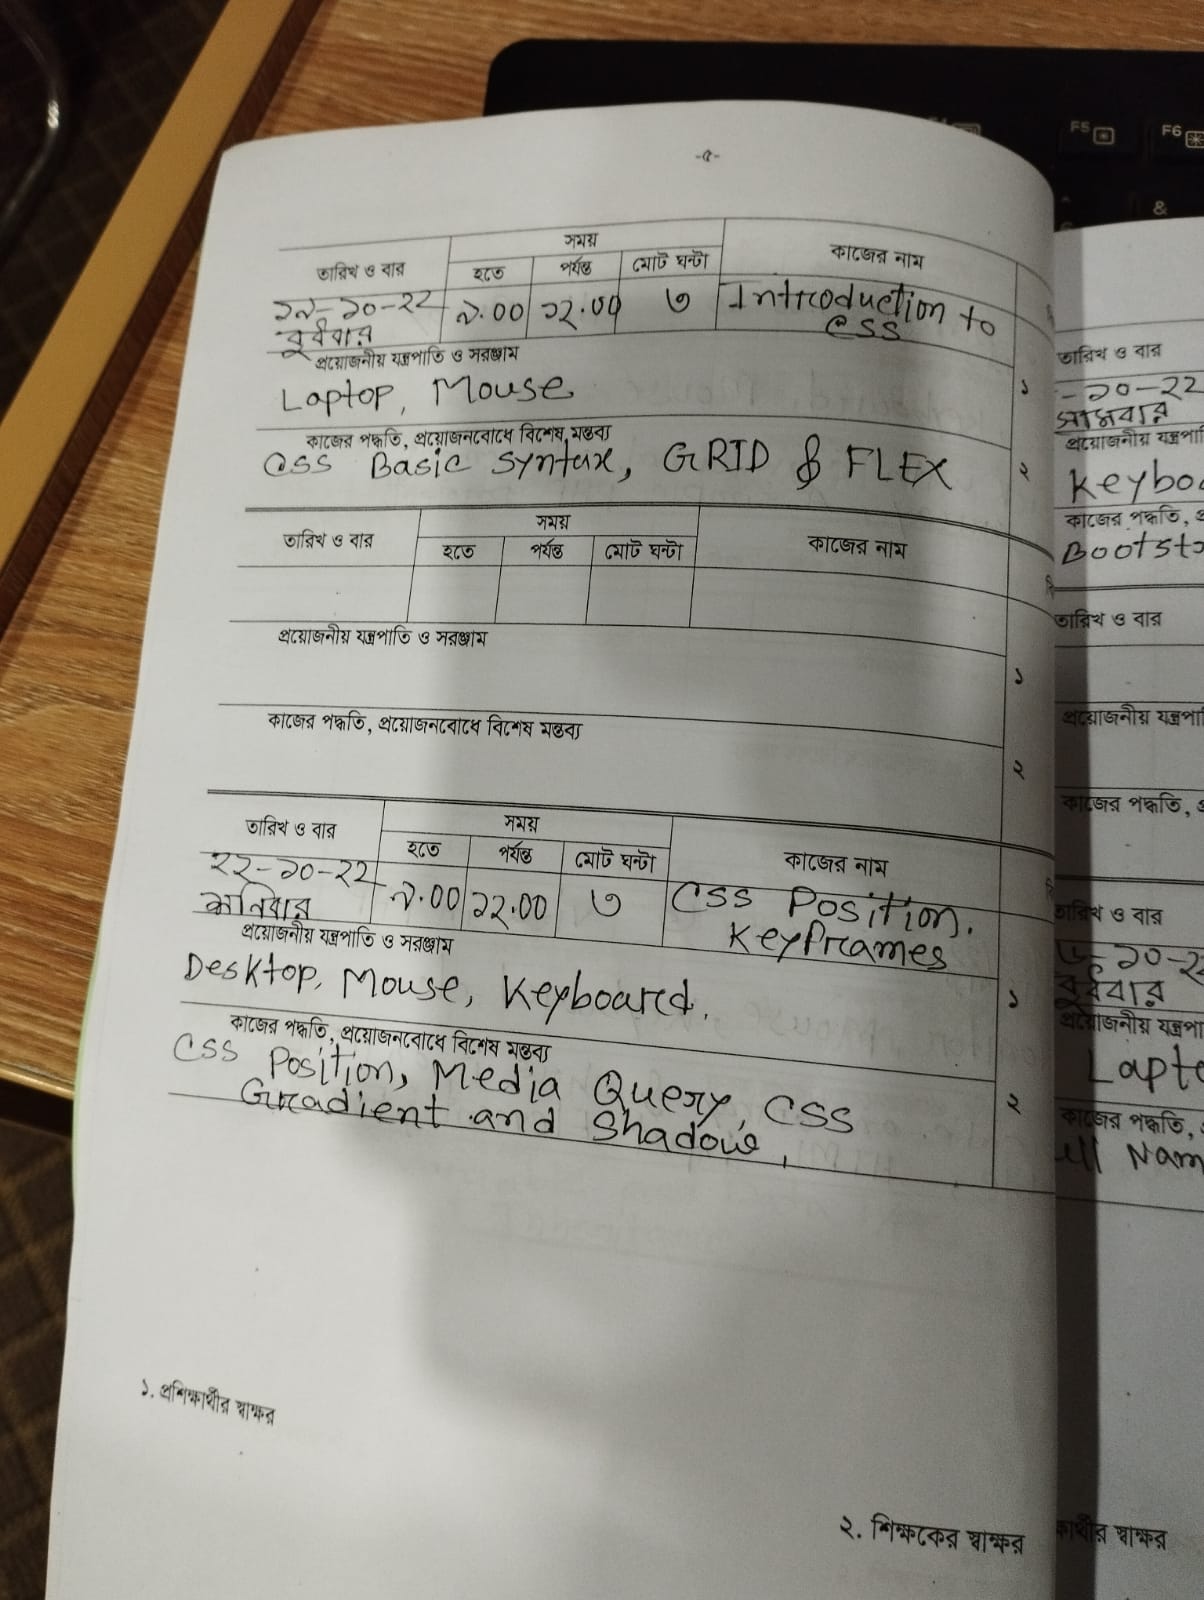 -৫-
তারিখ ও বার
সময়
হতে
পর্যন্ত
মোট ঘন্টা
কাজের নাম
১৯-১০-২২
বুধবার
৯.০০
১২.০০
৩
Introduction to
CSS
প্রয়োজনীয় যন্ত্রপাতি ও সরঞ্জাম
Laptop, Mouse
১
কাজের পদ্ধতি, প্রয়োজনবোধে বিশেষ মন্তব্য
CSS Basic Syntax, GRID & FLEX
২
তারিখ ও বার
সময়
হতে
পর্যন্ত
মোট ঘন্টা
কাজের নাম
প্রয়োজনীয় যন্ত্রপাতি ও সরঞ্জাম
১
কাজের পদ্ধতি, প্রয়োজনবোধে বিশেষ মন্তব্য
২
তারিখ ও বার
সময়
হতে
পর্যন্ত
মোট ঘন্টা
কাজের নাম
২২-১০-২২
শনিবার
৯.০০
১২.০০
৩
CSS Position.
Keyframes
প্রয়োজনীয় যন্ত্রপাতি ও সরঞ্জাম
Desktop, Mouse, Keyboard.
১
কাজের পদ্ধতি, প্রয়োজনবোধে বিশেষ মন্তব্য
CSS Position, Media Query, CSS
Gradient and Shadow,
২
১. প্রশিক্ষার্থীর স্বাক্ষর
২. শিক্ষকের স্বাক্ষর
তারিখ ও বার
-১০-২২
প্রয়োজনীয়
কাজের পদ্ধতি,
তারিখ ও বার
প্রয়োজনীয়
কাজের পদ্ধতি,
তারিখ ও বার
বুধবার
প্রয়োজনীয়
কাজের পদ্ধতি,
স্বাক্ষর
F5
F6
&